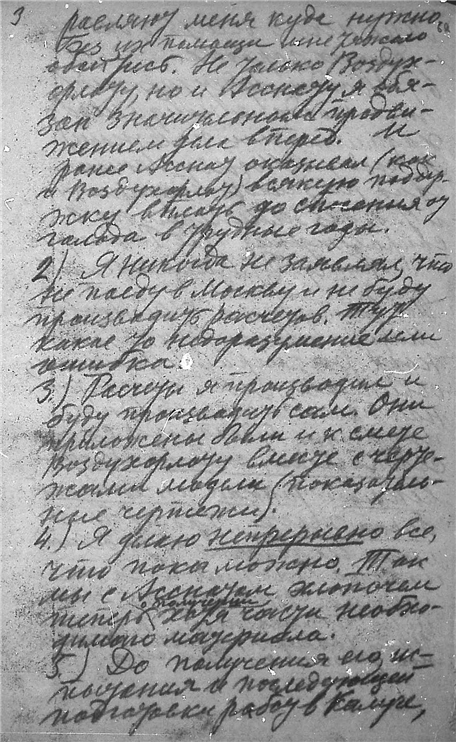 3 расляну меня куда нужно,
без их помощи и не удало
обойтись. Не только Воздух-
офлоту, но и Асснату я обя-
зан значительным продви-
жением дела вперед. И
ранее Асснат оказывал (как
и Воздухофлот) всякую поддер-
жку вплоть до спасения от
голода в трудные годы.
2) Я никогда не заявлял, что
не поеду в Москву и не буду
производить расчетов. Тут
какое то недоразумение или
ошибка.
3.) Расчеты я производил и
буду производить сам. Они
приложены были и к смете
Воздухофлоту вместе с черте-
жами модели (показатель-
ные чертежи).
4.) Я делаю непрерывно все,
что пока можно. Так
мы с Асснатом хлопочем
теперь о получении хотя части необхо-
димого материала.
5.) До получения его, ис-
пытания и последующей
подготовки работ в Калуге,